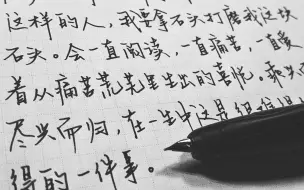 这样的人，我要拿石头打磨我这块
石头。会一直阅读，一直痛苦，一直爱
着从痛苦荒芜里生出的喜悦。乘兴
尽兴而归，在一生中这是很值得
得的一件事。